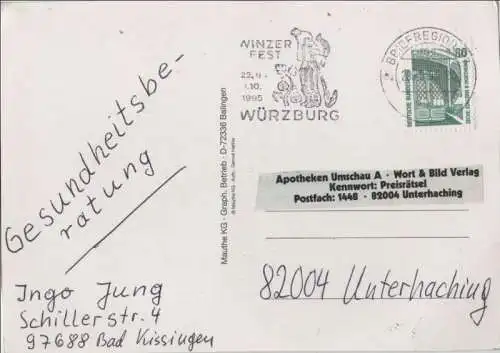 WINZER
FEST
22.9.-
1.10.
1995
WÜRZBURG
BRIEFREGION
80
DEUTSCHE BUNDESPOST
Gesundheitsbe-
ratung
Mauthe KG · Graph. Betrieb · D-72336 Balingen
Apotheken Umschau A · Wort & Bild Verlag
Kennwort: Preisrätsel
Postfach: 1448 · 82004 Unterhaching
82004 Unterhaching
Ingo Jung
Schillerstr. 4
97688 Bad Kissingen